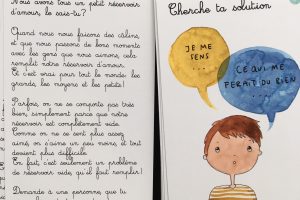 Nous avons tous un petit réservoir
d'amour, le sais-tu?
Quand nous nous faisons des câlins,
et que nous passons de bons moments
avec les gens que nous aimons, cela
remplit notre réservoir d'amour.
Et c'est vrai pour tout le monde: les
grands, les moyens et les petits!
Parfois, on ne se comporte pas très
bien, simplement parce que notre
réservoir est complètement vide.
Comme on ne se sent plus assez
aimé, on s'aime un peu moins, et tout
devient plus difficile.
En fait, c'est seulement un problème
de réservoir vide, qu'il faut remplir!
Demande à une personne, que tu
Cherche ta solution
JE ME
SENS
...
CE QUI ME
FERAIT DU BIEN
...